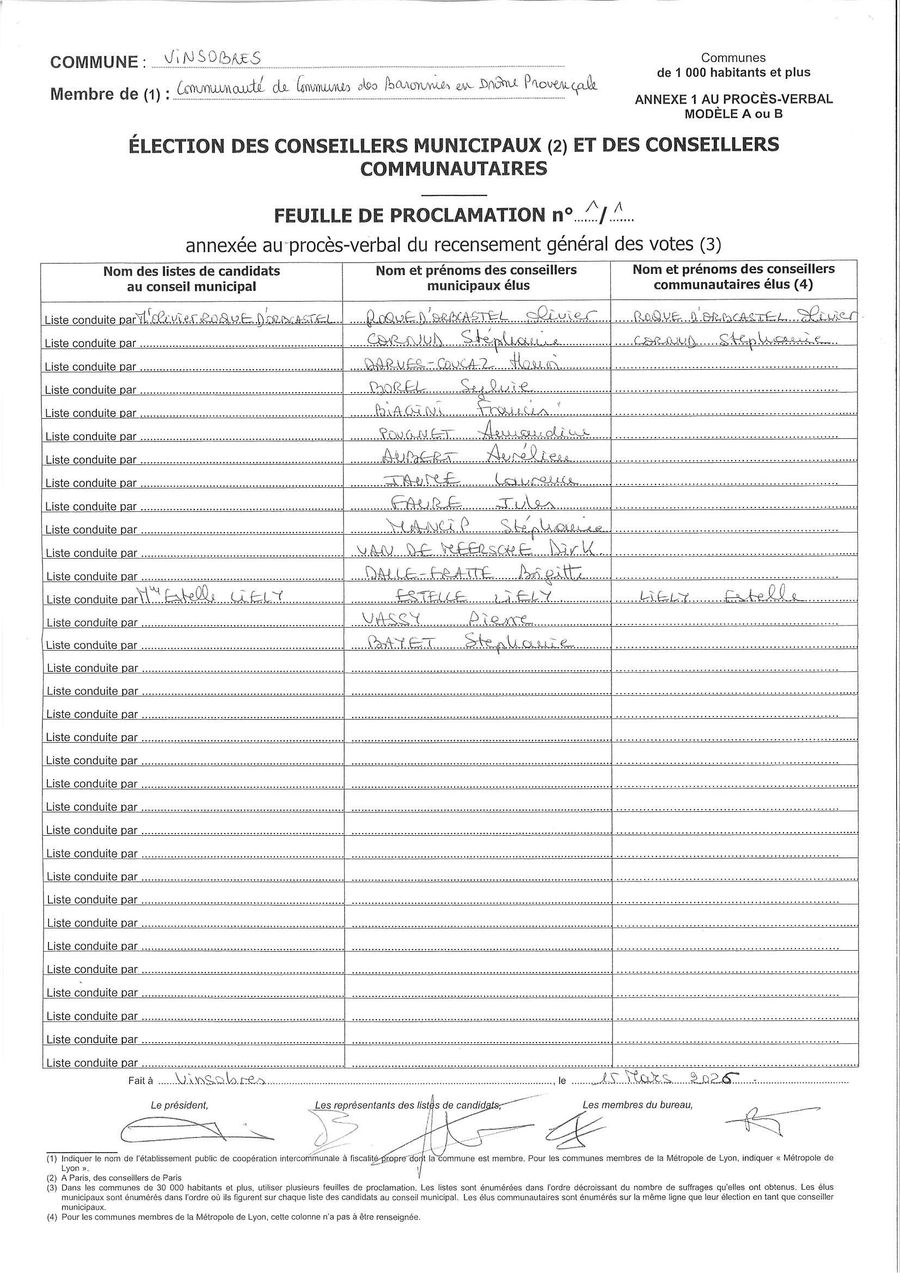 COMMUNE : VINSOBRES
Membre de (1) : Communauté de Communes des Baronnies en Drôme Provençale
Communes
de 1 000 habitants et plus
ANNEXE 1 AU PROCÈS-VERBAL
MODÈLE A ou B
ÉLECTION DES CONSEILLERS MUNICIPAUX (2) ET DES CONSEILLERS
COMMUNAUTAIRES
FEUILLE DE PROCLAMATION n° 1/1
annexée au procès-verbal du recensement général des votes (3)
Nom des listes de candidats au conseil municipal Nom et prénoms des conseillers municipaux élus Nom et prénoms des conseillers communautaires élus (4)
Liste conduite par Mr Olivier ROQUE D'ORBCASTEL ROQUE D'ORBCASTEL Olivier ROQUE D'ORBCASTEL Olivier
Liste conduite par CORNUD Stéphanie CORNUD Stéphanie
Liste conduite par DARVES-COUCAZ Henri
Liste conduite par BOREL Sylvie
Liste conduite par BIAGINI Francis
Liste conduite par POUGNET Amandine
Liste conduite par AUBERT Aurélien
Liste conduite par JAUME Laurence
Liste conduite par FAURE Jules
Liste conduite par MANCIP Stéphanie
Liste conduite par VAN DE MEERSCHE Dirk
Liste conduite par DALLE-FRATTE Brigitte
Liste conduite par Mme Estelle LIELY ESTELLE LIELY LIELY Estelle
Liste conduite par VASSY Pierre
Liste conduite par BAYET Stephanie
Liste conduite par
Liste conduite par
Liste conduite par
Liste conduite par
Liste conduite par
Liste conduite par
Liste conduite par
Liste conduite par
Liste conduite par
Liste conduite par
Liste conduite par
Liste conduite par
Liste conduite par
Liste conduite par
Liste conduite par
Liste conduite par
Liste conduite par
Liste conduite par
Fait à Vinsobres, le 15 Mars 2026
Le président, Les représentants des listes de candidats, Les membres du bureau,
(1) Indiquer le nom de l'établissement public de coopération intercommunale à fiscalité propre dont la commune est membre. Pour les communes membres de la Métropole de Lyon, indiquer « Métropole de
Lyon ».
(2) A Paris, des conseillers de Paris
(3) Dans les communes de 30 000 habitants et plus, utiliser plusieurs feuilles de proclamation. Les listes sont énumérées dans l'ordre décroissant du nombre de suffrages qu'elles ont obtenus. Les élus
municipaux sont énumérés dans l'ordre où ils figurent sur chaque liste des candidats au conseil municipal. Les élus communautaires sont énumérés sur la même ligne que leur élection en tant que conseiller
municipaux.
(4) Pour les communes membres de la Métropole de Lyon, cette colonne n'a pas à être renseignée.